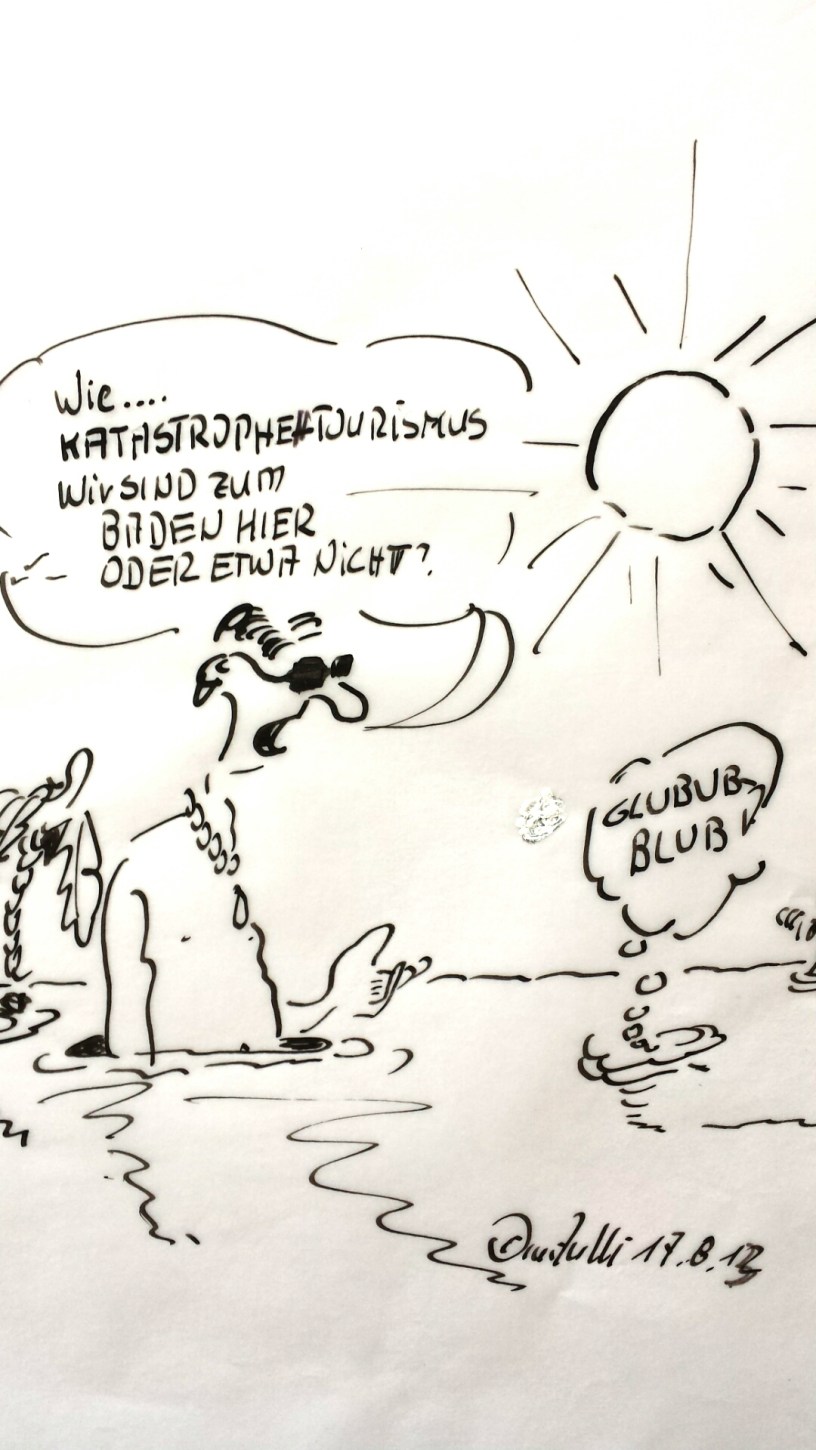 Wie....
KATASTROPHENTOURISMUS
Wir SIND ZUM
BADEN HIER
ODER ETWA NICHT?
GLUBUB-
BLUB!
17.8.13